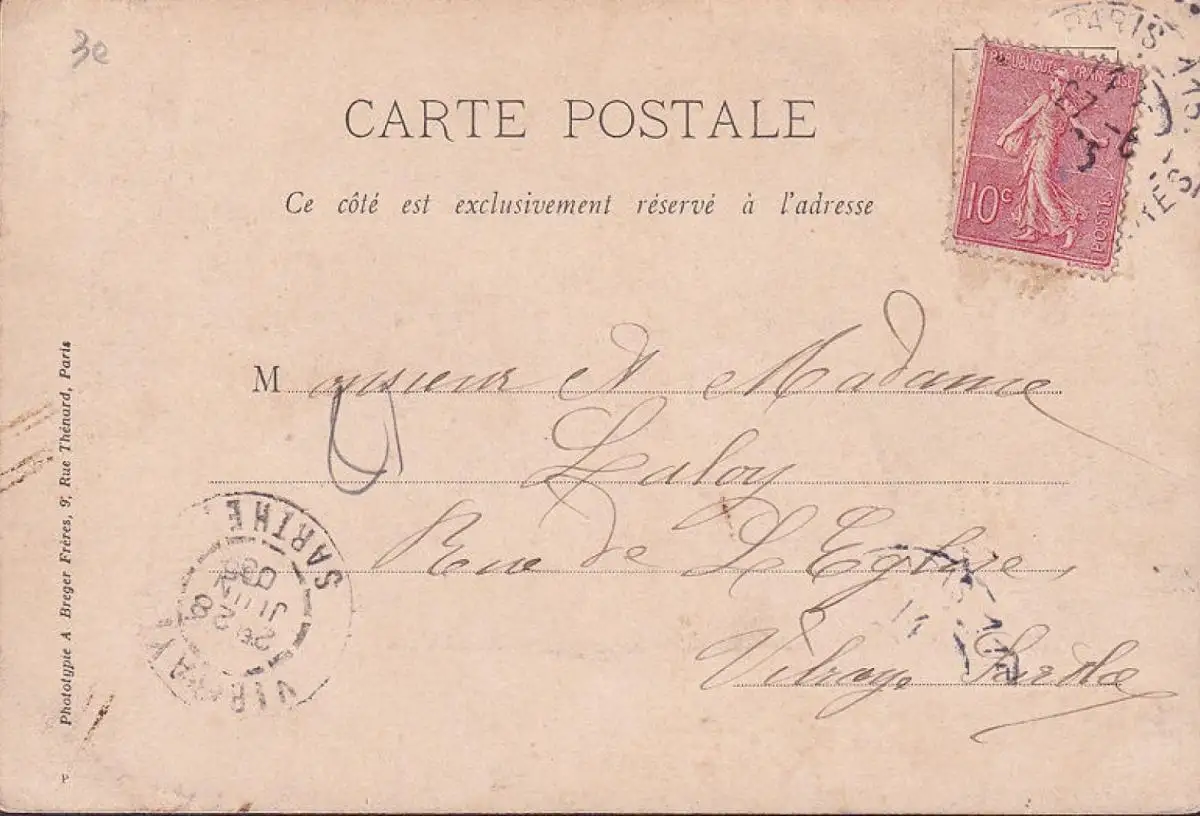 3e
CARTE POSTALE
Ce côté est exclusivement réservé à l'adresse
RÉPUBLIQUE FRANÇAISE
10c
POSTES
PARIS
Monsieur et Madame
Laloy
Rue de L'Eglise,
Vibraye Sarthe
VIBRAYE
SARTHE
JUIN
Phototypie A Breger Frères, 9, Rue Thénard, Paris
P